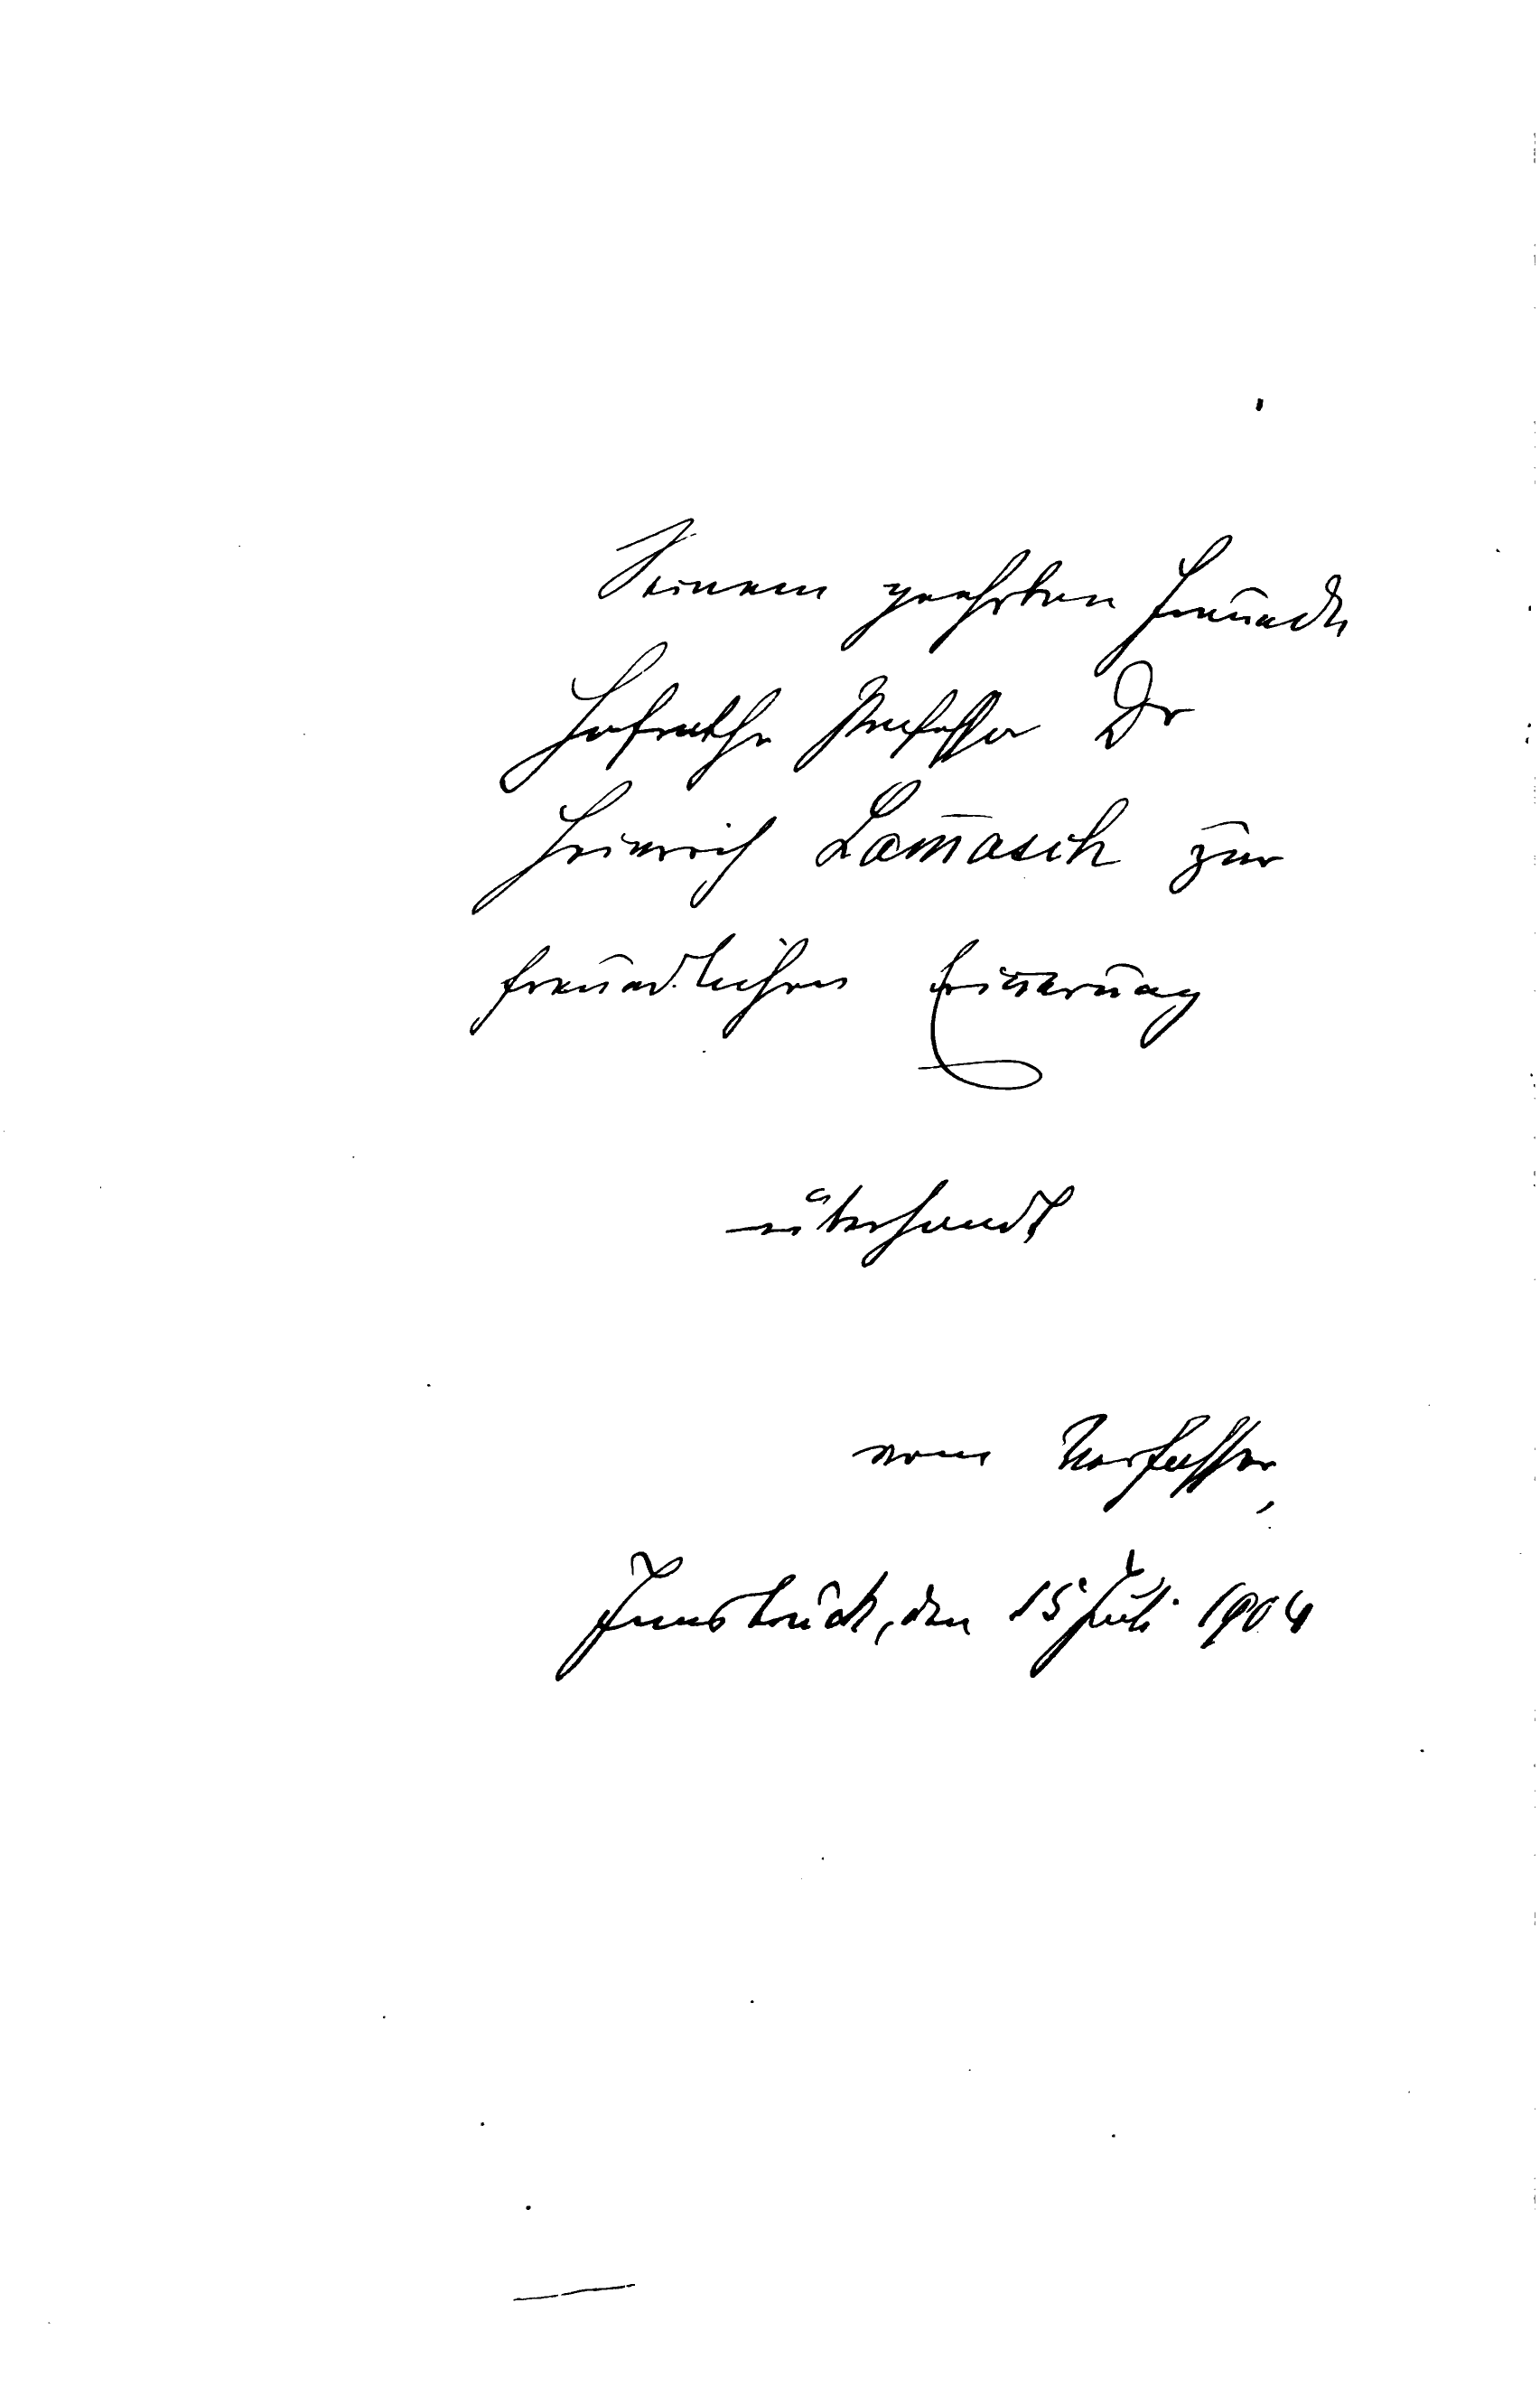 Seinem geehrten Freunde
Hofrathe Professor Dr
Heinrich Lam̅asch zur
freundlichen Erin̅erung
übersandt
vom Verfasser,
Innsbruck, den 15 Juli 1904